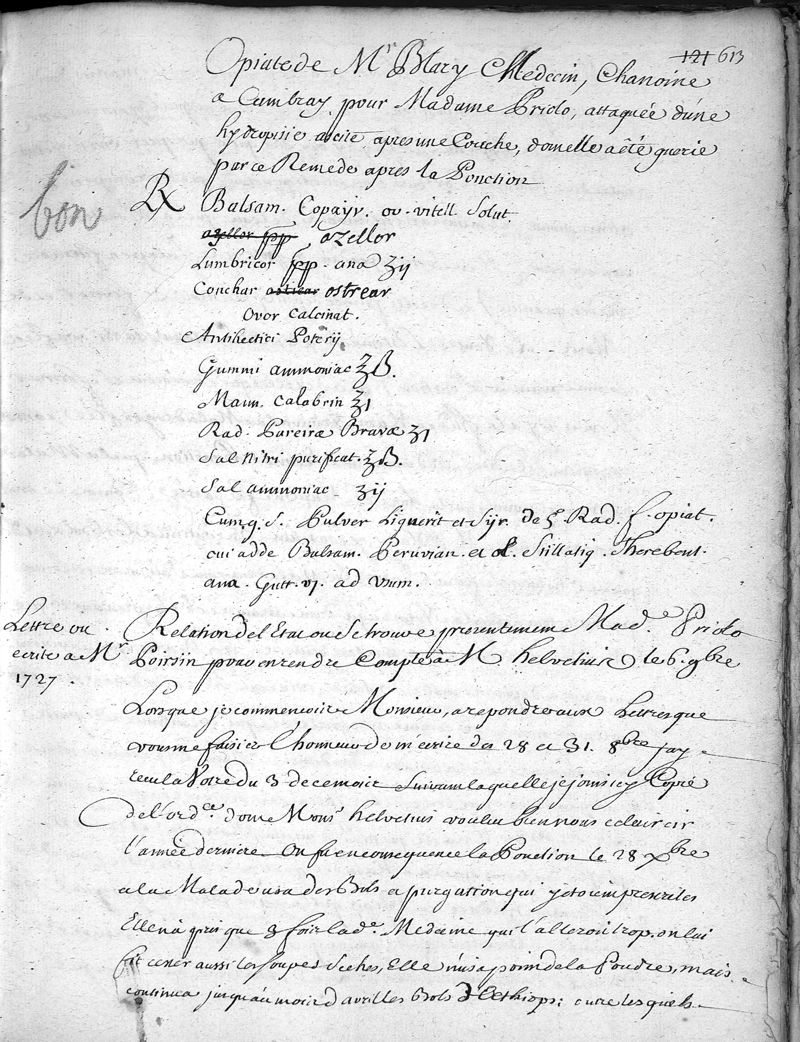 121 613
Opiate de Mr Blary Medecin, Chanoine
a Cambray pour Madame Priclo, attaquée d'une
hydropisie ascite apres une Couche, dont elle a été guerie
par ce Remede apres la Ponction
bon
Rx Balsam. Copayv. ov. vitell. Solut.
azellor pp azellor
Lumbricor pp. ana ʒij
Conchar ostrear
Ovor calcinat.
Antihectici Poterij
Gummi ammoniac ʒß.
Mann. calabrin ʒ1
Rad. Pareiræ Bravæ ʒ1
Sal Nitri purificat. ʒß.
Sal ammoniac ʒij
Cum q. s. Pulver Liquerit et Syr. de 5 Rad. f. opiat.
cui adde Balsam. Peruvian. et ol. Stillatiq. Therebent.
ana. Gutt. vj. ad unum.
Lettre ou
ecrite a Mr
1727.
Relation de l'Etat ou se trouve presentement Made Priclo
Poirsin pour en rendre Compte à M helvetius le 6. 9bre
Lorsque je commencois Monsieur, a repondre aux Lettres que
vous me faisiez l'honneur de m'ecrire des 28 et 31. 8bre j'ay
recu la Votre du 3 de ce mois suivant laquelle je joins icy Copie
de l'ordce dont Monsr helvetius voulu bien nous eclaircir
l'année derniere On fit en consequence la Ponction le 28 Xbre
a la Malade usa des Bols et purgation qui y etoient prescrites
Elle n'a pris que 3 fois lade Medecine qui l'alleroit trop, on lui
fit cesser aussi les soupes seches, Elle n'usa point de la Poudre, mais
continua jusqu'au mois d'avril les Bols d'Aethiops: outre lesquels